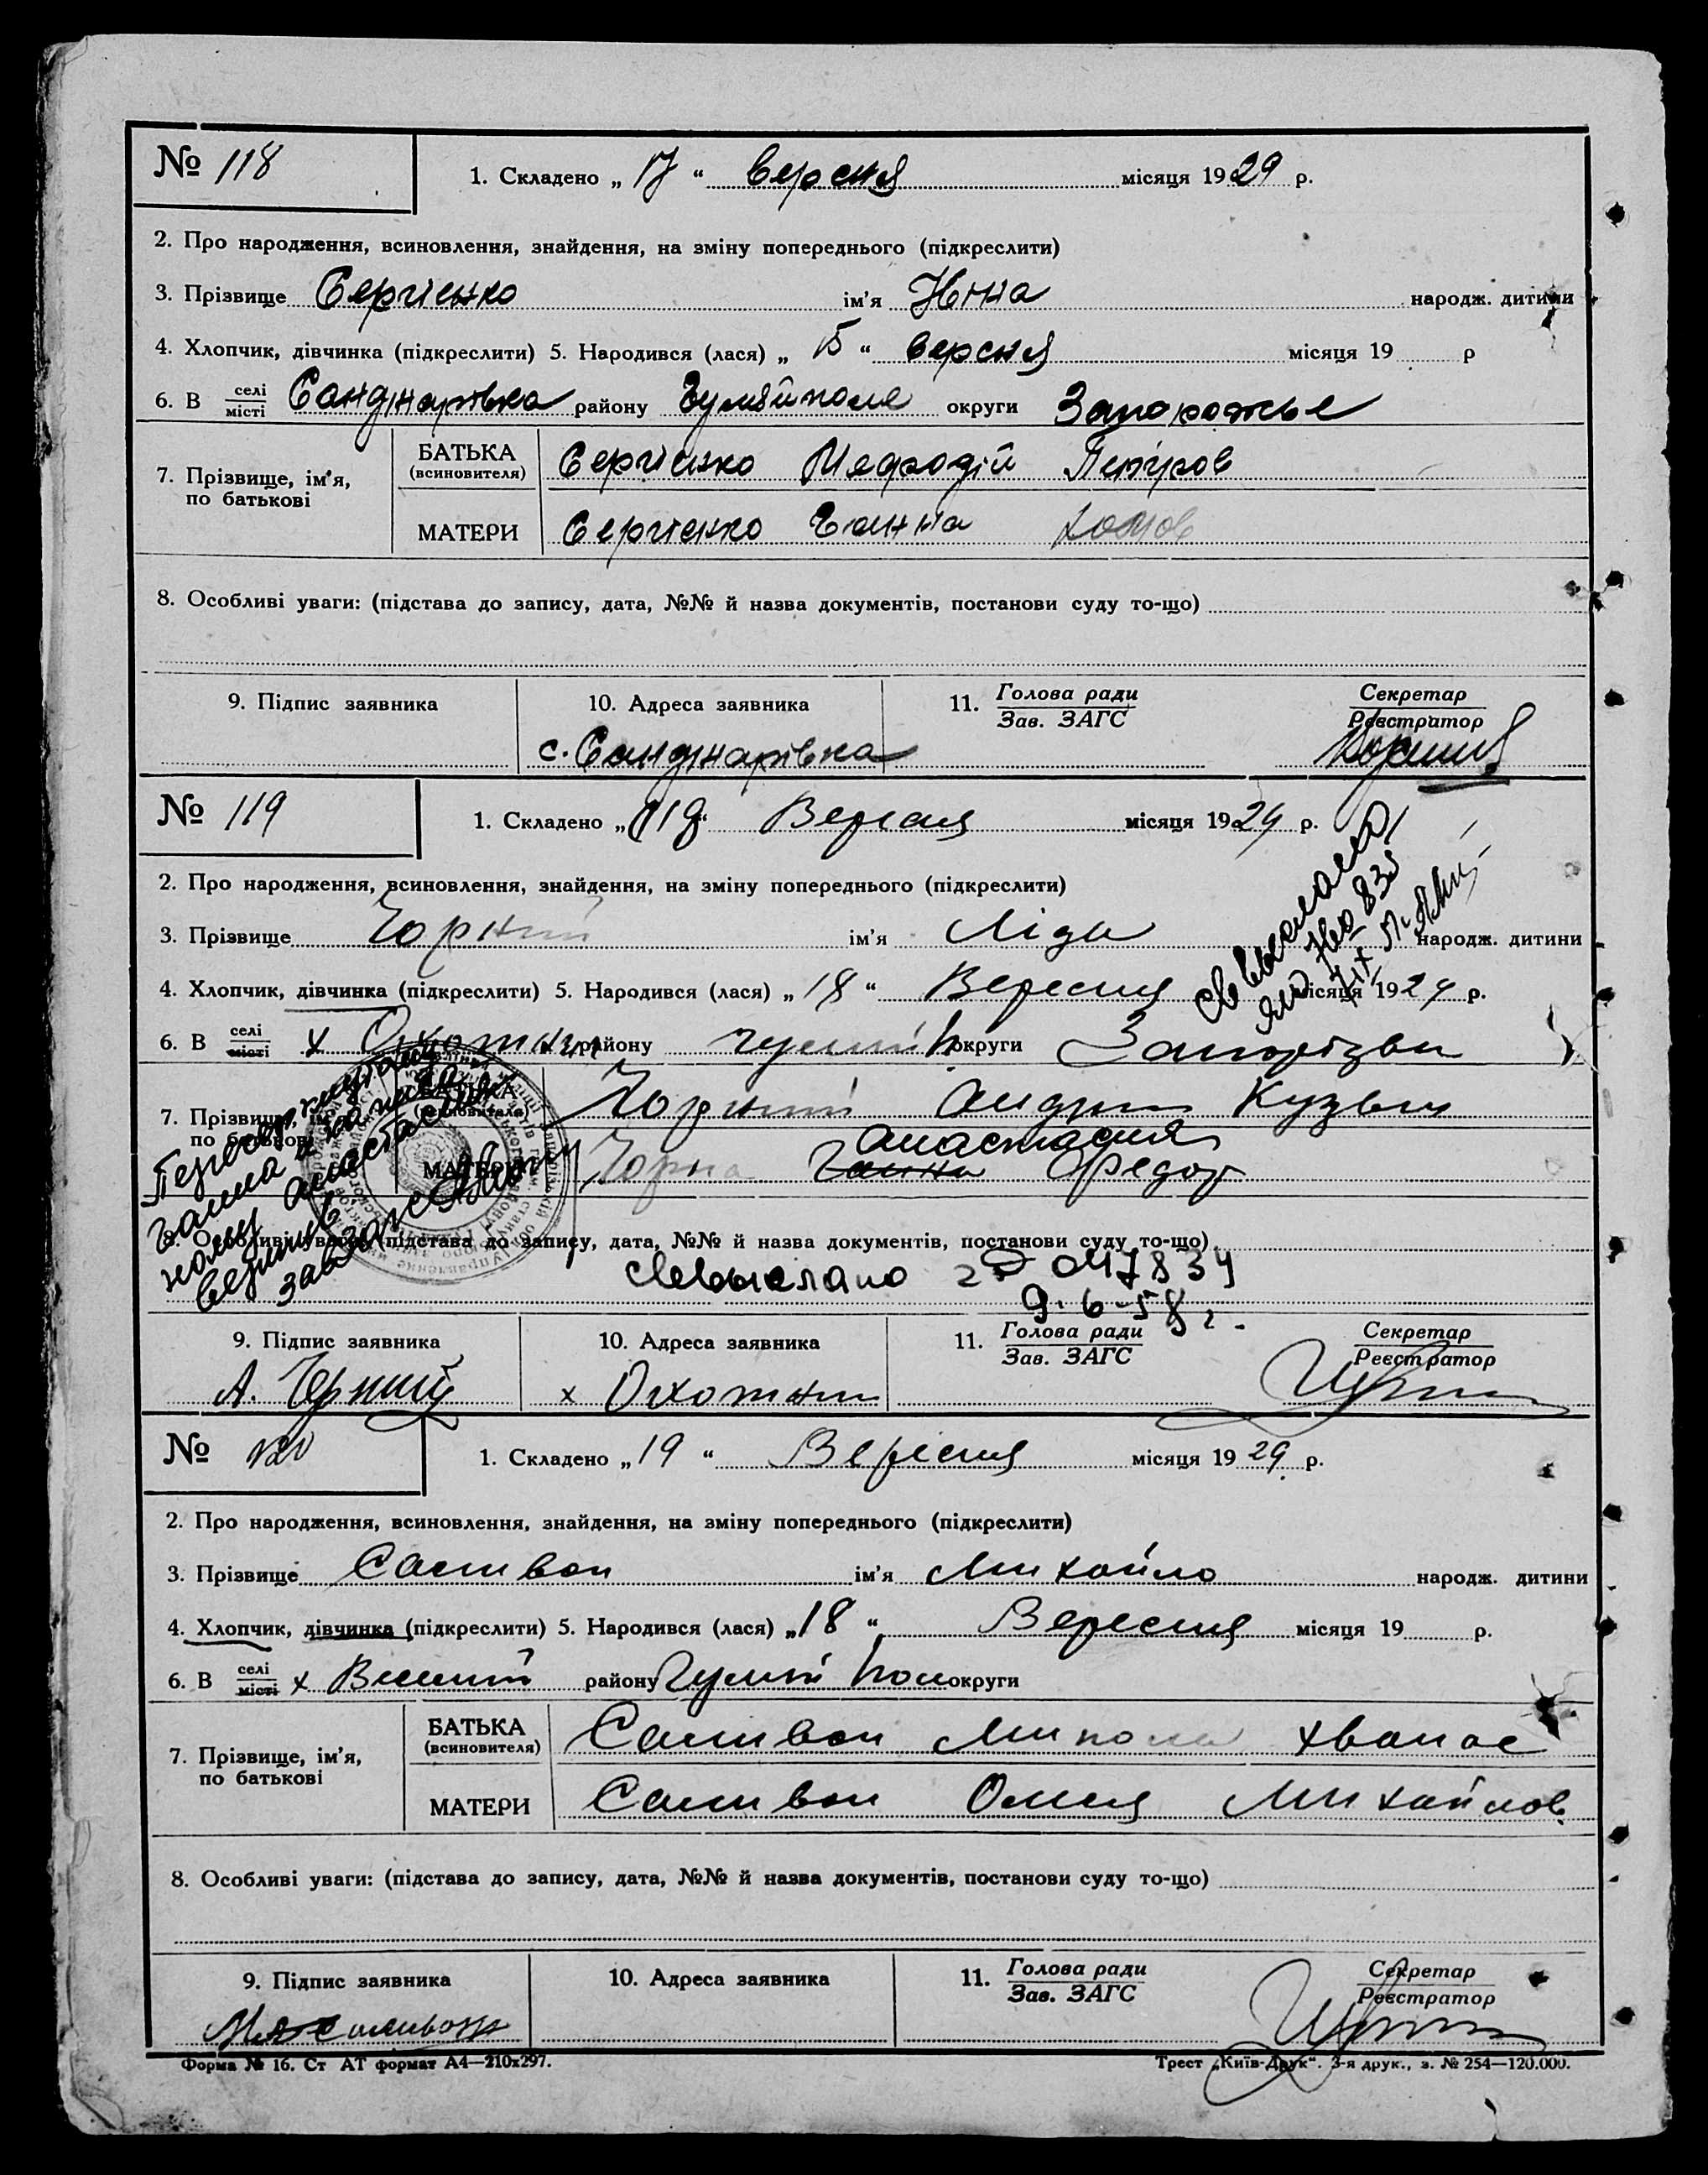 № 118
1. Складено „ 17 “ версня місяця 1929 р.
2. Про народження, всиновлення, знайдення, на зміну попереднього (підкреслити)
3. Прізвище Сергієнко ім'я Нина народж. дитини
4. Хлопчик, дівчинка (підкреслити) 5. Народився (лася) „ 15 “ версня місяця 19 р
6. В селі місті району округи Запорожье
7. Прізвище, ім'я, по батькові
БАТЬКА (всиновителя) Сергієнко Мефодій Петров
МАТЕРИ Сергієнко Ганна Хомов
8. Особливі уваги: (підстава до запису, дата, №№ й назва документів, постанови суду то-що)
9. Підпис заявника
10. Адреса заявника
11. Голова ради Зав. ЗАГС
Секретар Реєстратор
с.
№ 119
1. Складено „ 19 “ Вересня місяця 1929 р.
2. Про народження, всиновлення, знайдення, на зміну попереднього (підкреслити)
3. Прізвище Чорний ім'я Ліда народж. дитини
4. Хлопчик, дівчинка (підкреслити) 5. Народився (лася) „ 18 “ Вересня місяця 1929 р.
6. В селі місті х Охотнич району Гуляй П округи Запоріжжя
7. Прізвище, ім'я, по батькові
БАТЬКА (всиновителя) Чорний Андрій Кузьм
Анастасия
МАТЕРИ Чорна Ганна Федор
8. Особливі уваги: (підстава до запису, дата, №№ й назва документів, постанови суду то-що)
выслано 047834
9.6-58 г.
9. Підпис заявника
10. Адреса заявника
11. Голова ради Зав. ЗАГС
Секретар Реєстратор
А. Чорний
х Охотнич
№ 120
1. Складено „ 19 “ Вересня місяця 1929 р.
2. Про народження, всиновлення, знайдення, на зміну попереднього (підкреслити)
3. Прізвище Саливон ім'я Михайло народж. дитини
4. Хлопчик, дівчинка (підкреслити) 5. Народився (лася) „ 18 “ Вересня місяця 19 р.
6. В селі місті х району Гуляй Поле округи
7. Прізвище, ім'я, по батькові
БАТЬКА (всиновителя) Саливон Микола Хванас
МАТЕРИ Саливон Михайлов
8. Особливі уваги: (підстава до запису, дата, №№ й назва документів, постанови суду то-що)
9. Підпис заявника
10. Адреса заявника
11. Голова ради Зав. ЗАГС
Секретар Реєстратор
Форма № 16. Ст АТ формат А4—210х297.
Трест „Київ-Друк“. 3-я друк., з. № 254—120.000.